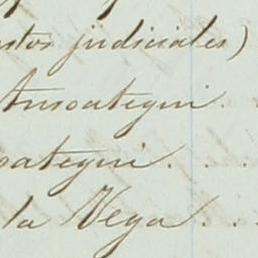 judiciales)
Ansoategui . .
oategui . . .
la Vega . . .